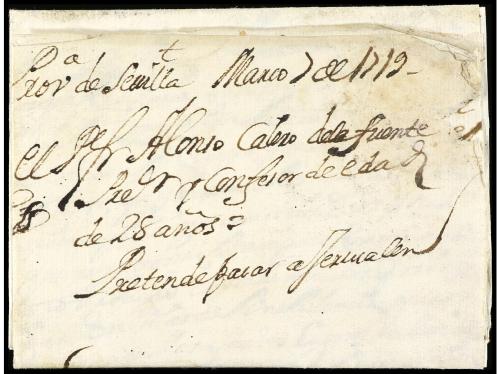 Prov.a de Sevilla Marzo 7 de 1719
el P.e fr Alonso Calero de la fuente
Pre.r y Confesor de edad
de 28 años
Pretende pasar a Jerusalen